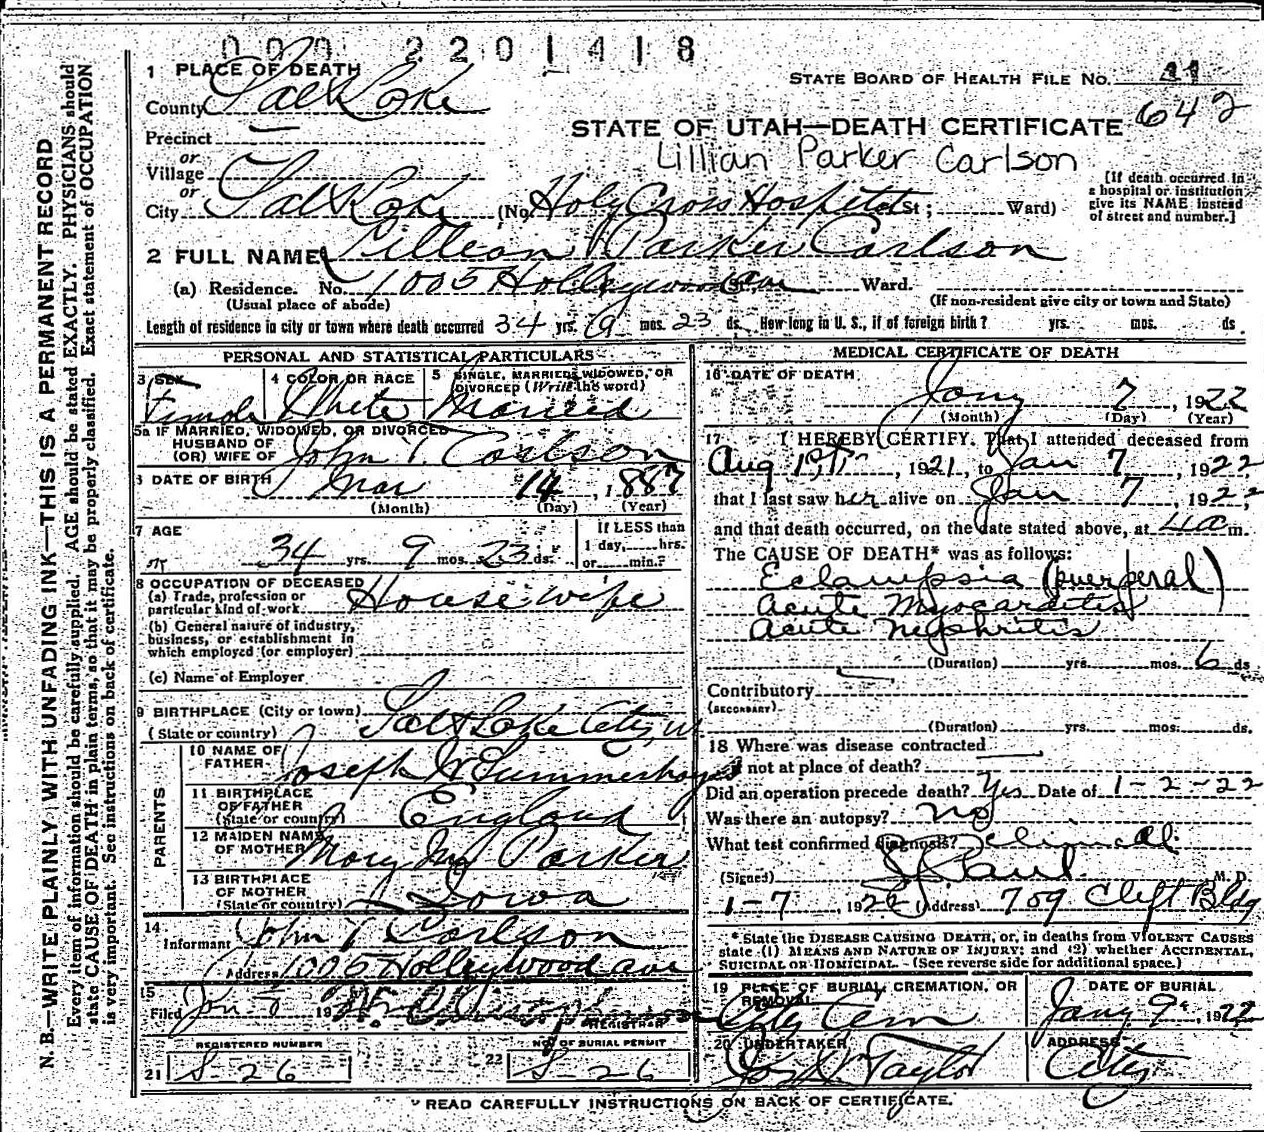 000 2201418
1 PLACE OF DEATH
STATE BOARD OF HEALTH FILE No. 11
County Salt Lake
642
Precinct —
STATE OF UTAH—DEATH CERTIFICATE
or
Village
Lillian Parker Carlson
or
City Salt Lake (No. Holy Cross Hospital St; Ward)
[If death occurred in a hospital or institution give its NAME instead of street and number.]
2 FULL NAME Lillian Parker Carlson
(a) Residence. No. 1005 Hollywood Ave St. Ward.
(Usual place of abode)
(If non-resident give city or town and State)
Length of residence in city or town where death occurred 34 yrs. 9 mos. 23 ds. How long in U. S., if of foreign birth? yrs. mos. ds
PERSONAL AND STATISTICAL PARTICULARS
3 SEX
Female
4 COLOR OR RACE
White
5 SINGLE, MARRIED, WIDOWED, OR DIVORCED (Write the word)
Married
5a IF MARRIED, WIDOWED, OR DIVORCED
HUSBAND OF
(OR) WIFE OF John T. Carlson
6 DATE OF BIRTH Mar 14, 1887
(Month) (Day) (Year)
7 AGE
34 yrs. 9 mos. 23 ds.
If LESS than
1 day, hrs.
or min.?
8 OCCUPATION OF DECEASED
(a) Trade, profession or
particular kind of work Housewife
(b) General nature of industry,
business, or establishment in
which employed (or employer)
(c) Name of Employer
9 BIRTHPLACE (City or town) Salt Lake City, U
(State or country)
PARENTS
10 NAME OF
FATHER Joseph W Summerhays
11 BIRTHPLACE
OF FATHER
(State or country) England
12 MAIDEN NAME
OF MOTHER Mary Parker
13 BIRTHPLACE
OF MOTHER
(State or country) Iowa
14
Informant John T Carlson
Address 1005 Hollywood ave
15
Filed Jan 8 19
REGISTRAR
REGISTERED NUMBER
21 S-26
NO. OF BURIAL PERMIT
22 S-26
MEDICAL CERTIFICATE OF DEATH
16 DATE OF DEATH
Jany 7, 1922
(Month) (Day) (Year)
17 I HEREBY CERTIFY, That I attended deceased from
Aug 1st, 1921, to Jan 7, 1922
that I last saw her alive on Jan 7, 1922,
and that death occurred, on the date stated above, at 4 a m.
The CAUSE OF DEATH* was as follows:
Eclampsia (puerperal)
Acute Myocarditis
Acute Nephritis
(Duration) yrs. mos. 6 ds
Contributory
(SECONDARY)
(Duration) yrs. mos. ds.
18 Where was disease contracted —
if not at place of death?
Did an operation precede death? Yes Date of 1-2-22
Was there an autopsy? No
What test confirmed diagnosis? Clinical
(Signed) Paul M. D.
1-7, 1922 (Address) 709 Clift Bldg
* State the DISEASE CAUSING DEATH, or, in deaths from VIOLENT CAUSES
state (1) MEANS AND NATURE OF INJURY; and (2) whether ACCIDENTAL,
SUICIDAL OR HOMICIDAL. (See reverse side for additional space.)
19 PLACE OF BURIAL, CREMATION, OR
REMOVAL
City Cem
DATE OF BURIAL
Jany 9, 1922
20 UNDERTAKER
Jos Wm Taylor
ADDRESS
City
READ CAREFULLY INSTRUCTIONS ON BACK OF CERTIFICATE.
N. B.—WRITE PLAINLY WITH UNFADING INK—THIS IS A PERMANENT RECORD
Every item of information should be carefully supplied. AGE should be stated EXACTLY. PHYSICIANS should
state CAUSE OF DEATH in plain terms, so that it may be properly classified. Exact statement of OCCUPATION
is very important. See instructions on back of certificate.